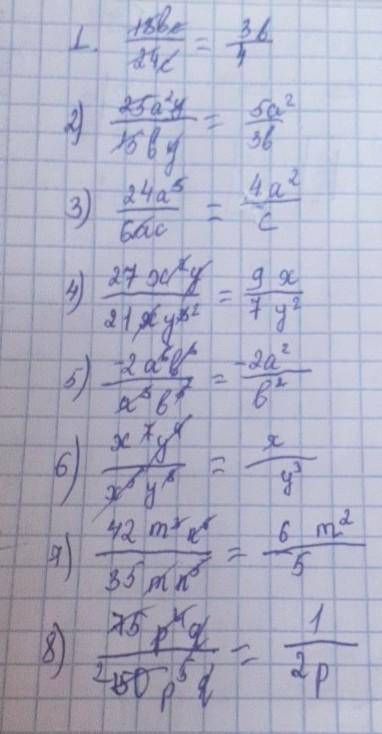 1. 18bc/24c = 3b/4
2) 25a²y/15by = 5a²/3b
3) 24a³/6ac = 4a²/c
4) 27x²y/21xy² = 9x/7y²
5) -2a⁵b⁵/a³b⁷ = -2a²/b²
6) x⁷y/x⁶y = x/y³
7) 42m³n⁵/35mn⁵ = 6m²/5
8) 75p⁴q/150p⁵q = 1/2p